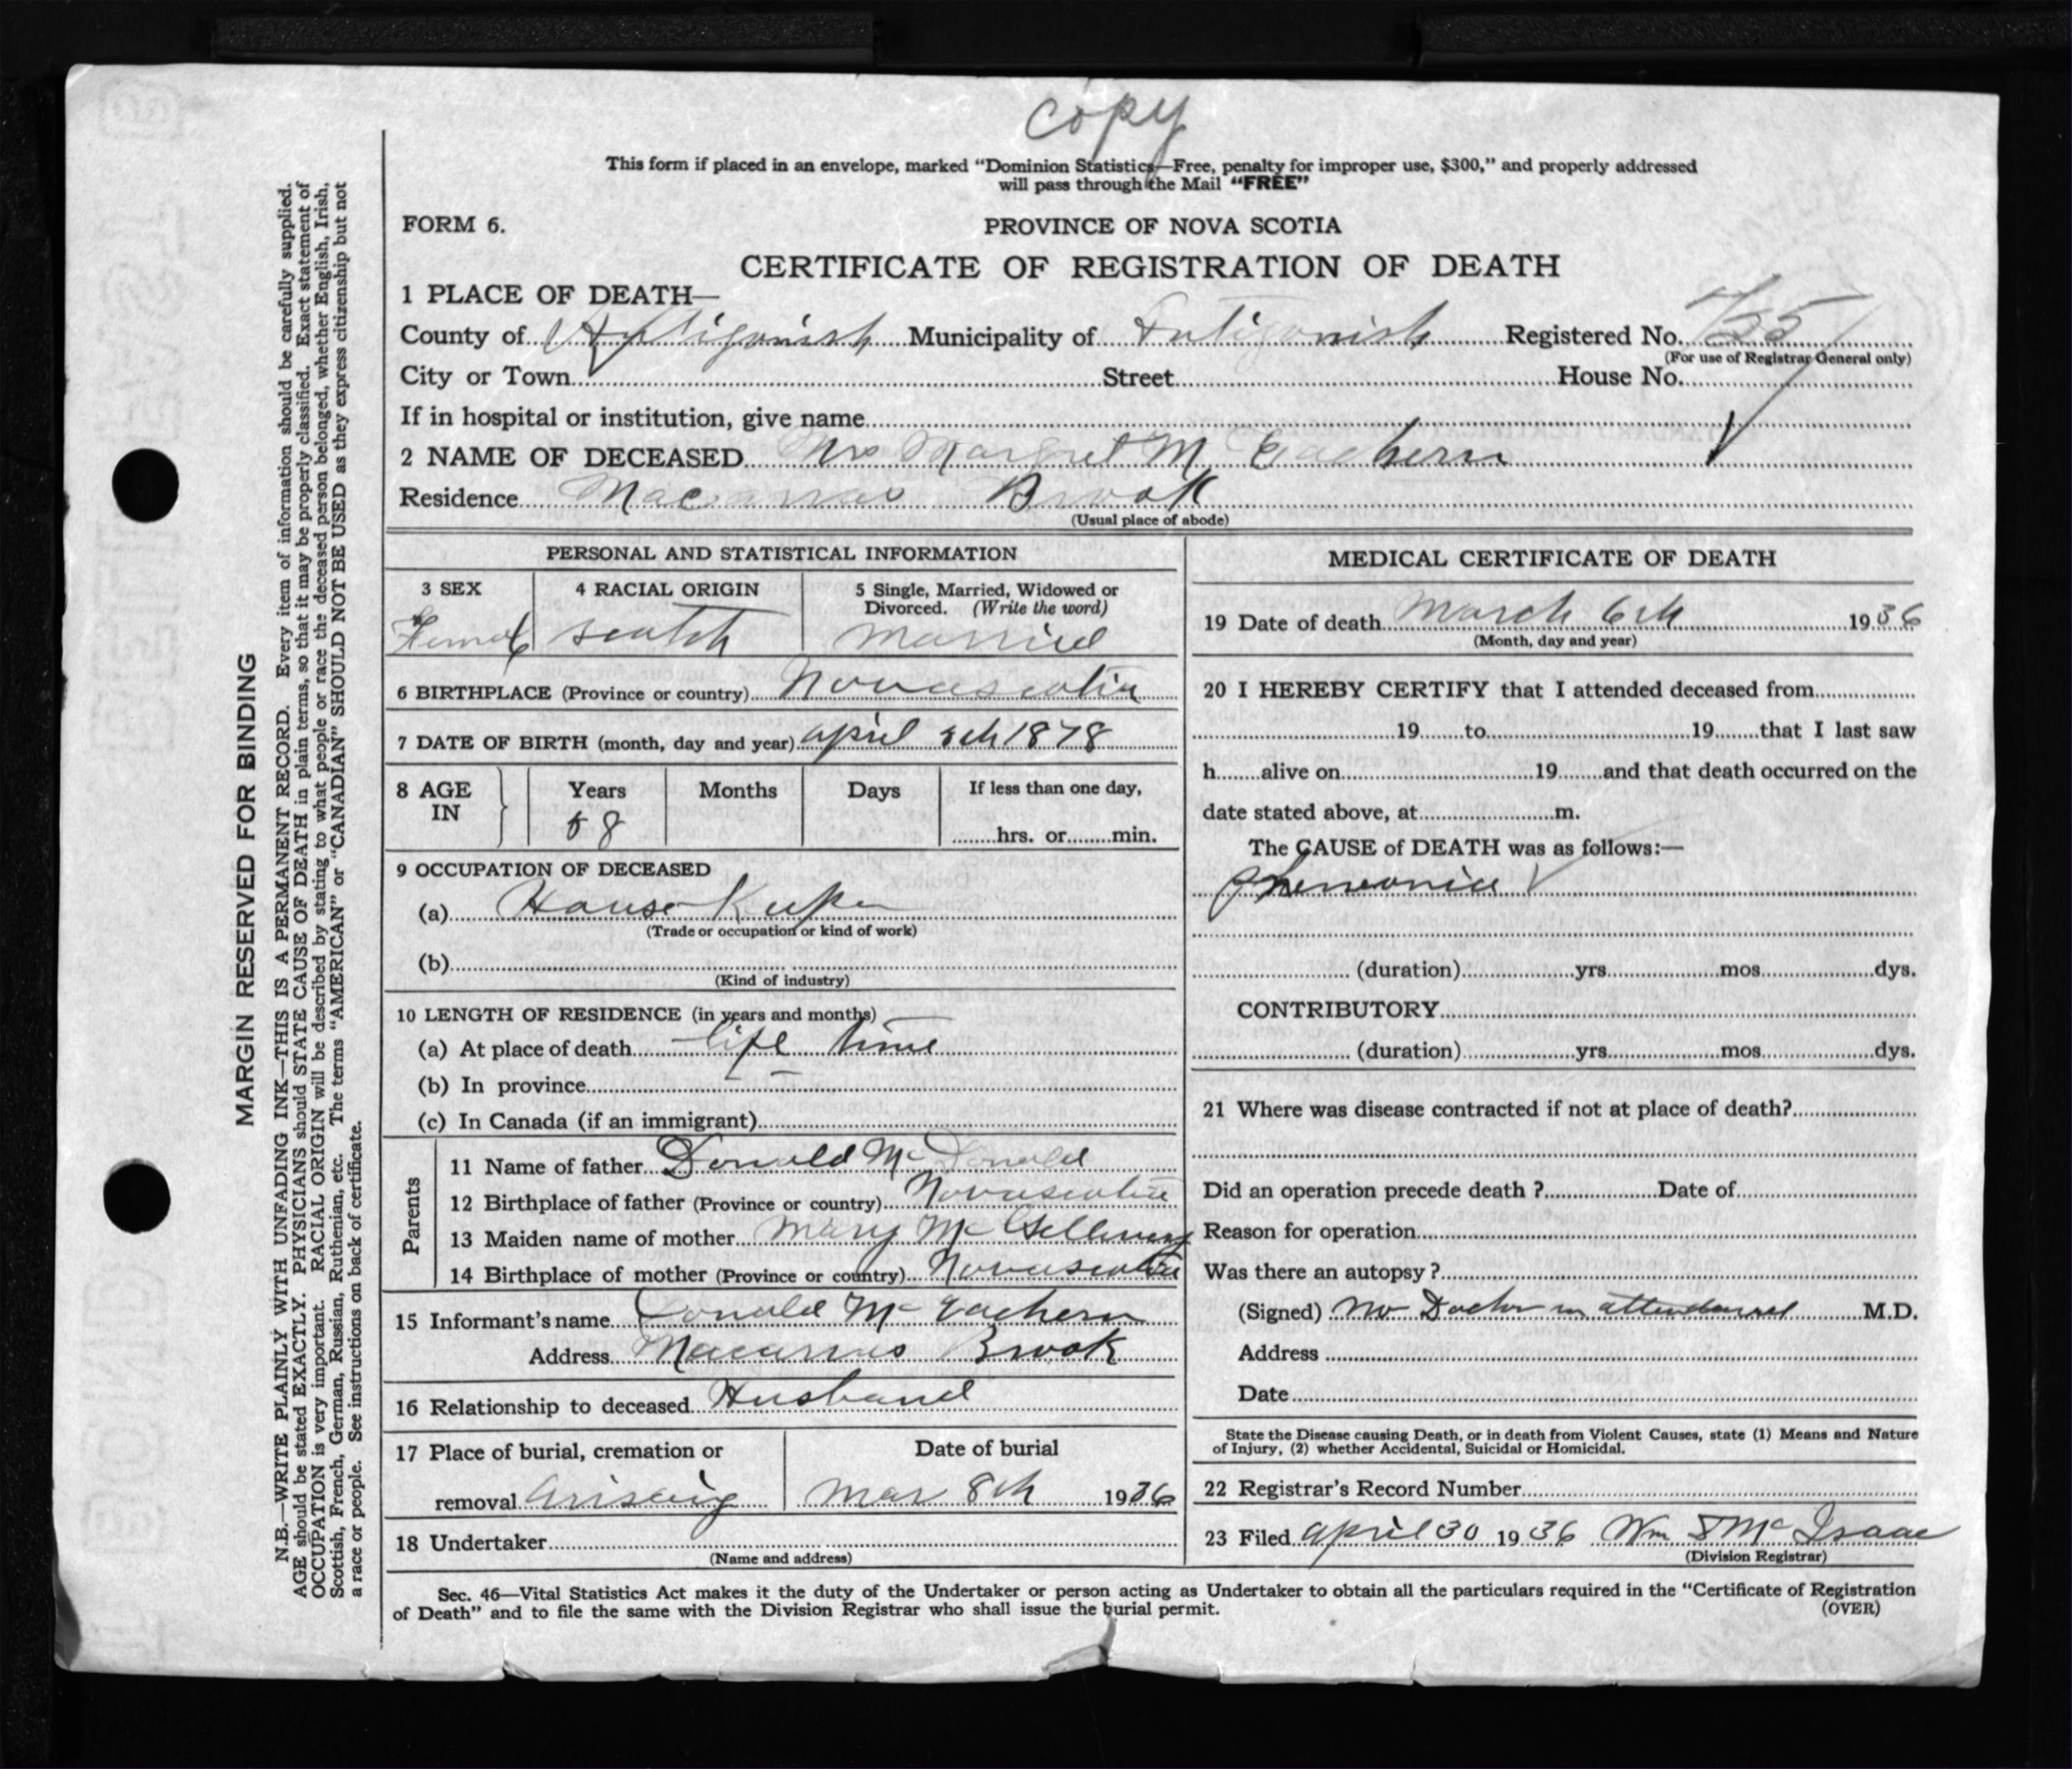 copy
This form if placed in an envelope, marked "Dominion Statistics—Free, penalty for improper use, $300," and properly addressed
will pass through the Mail "FREE"
FORM 6.
PROVINCE OF NOVA SCOTIA
CERTIFICATE OF REGISTRATION OF DEATH
1 PLACE OF DEATH—
County of Antigonish Municipality of Antigonish Registered No.
(For use of Registrar General only)
City or Town Street House No.
If in hospital or institution, give name
2 NAME OF DECEASED Mrs Margret Mc Eachern
Residence Brook
(Usual place of abode)
PERSONAL AND STATISTICAL INFORMATION
3 SEX 4 RACIAL ORIGIN 5 Single, Married, Widowed or
Divorced. (Write the word)
Female scotch Married
6 BIRTHPLACE (Province or country) Novascotia
7 DATE OF BIRTH (month, day and year) april 8th 1878
8 AGE IN Years Months Days If less than one day,
58 hrs. or min.
9 OCCUPATION OF DECEASED
(a) House Keeper
(Trade or occupation or kind of work)
(b)
(Kind of industry)
10 LENGTH OF RESIDENCE (in years and months)
(a) At place of death life time
(b) In province
(c) In Canada (if an immigrant)
Parents
11 Name of father Donald Mc Donald
12 Birthplace of father (Province or country) Novascotia
13 Maiden name of mother Mary Mc Gellivray
14 Birthplace of mother (Province or country) Novascotia
15 Informant's name Donald Mc Eachern
Address Brook
16 Relationship to deceased Husband
17 Place of burial, cremation or Date of burial
removal Arisaig Mar 8th 1936
18 Undertaker
(Name and address)
MEDICAL CERTIFICATE OF DEATH
19 Date of death March 6th 1936
(Month, day and year)
20 I HEREBY CERTIFY that I attended deceased from
19 to 19 that I last saw
h alive on 19 and that death occurred on the
date stated above, at m.
The CAUSE of DEATH was as follows:—
Pnewonia
(duration) yrs. mos. dys.
CONTRIBUTORY
(duration) yrs. mos. dys.
21 Where was disease contracted if not at place of death?
Did an operation precede death? Date of
Reason for operation
Was there an autopsy?
(Signed) No Doctor in M.D.
Address
Date
State the Disease causing Death, or in death from Violent Causes, state (1) Means and Nature
of Injury, (2) whether Accidental, Suicidal or Homicidal.
22 Registrar's Record Number
23 Filed april 30 1936 Wm S Mc Isaac
(Division Registrar)
Sec. 46—Vital Statistics Act makes it the duty of the Undertaker or person acting as Undertaker to obtain all the particulars required in the "Certificate of Registration
of Death" and to file the same with the Division Registrar who shall issue the burial permit.
(OVER)
MARGIN RESERVED FOR BINDING
N.B.—WRITE PLAINLY WITH UNFADING INK—THIS IS A PERMANENT RECORD. Every item of information should be carefully supplied.
AGE should be stated EXACTLY. PHYSICIANS should STATE CAUSE OF DEATH in plain terms, so that it may be properly classified. Exact statement of
OCCUPATION is very important. RACIAL ORIGIN will be described by stating to what people or race the deceased person belonged, whether English, Irish,
Scottish, French, German, Russian, Ruthenian, etc. The terms "AMERICAN" or "CANADIAN" SHOULD NOT BE USED as they express citizenship but not
a race or people. See instructions on back of certificate.